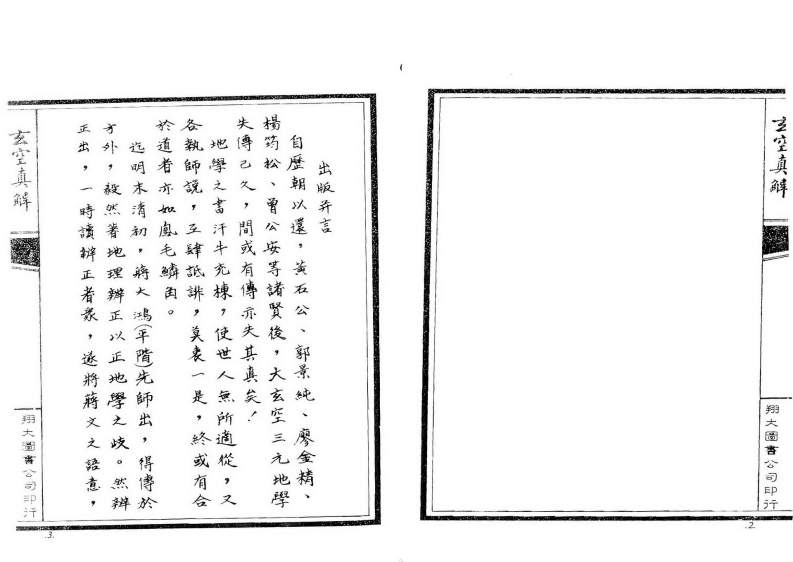 玄空真解
翔大圖書公司印行
.2.
出版弁言
自歷朝以還，黃石公、郭景純、廖金精、
楊筠松、曾公安等諸賢後，大玄空三元地學
失傳已久，間或有傳亦失其真矣！
地學之書汗牛充棟，使世人無所適從，又
各執師說，互肆詆誹，莫衷一是，終或有合
於道者亦如鳳毛鱗角。
迄明末清初，蔣大鴻(平階)先師出，得傳於
方外，毅然著地理辨正以正地學之歧。然辨
正出，一時讀辨正者眾，遂將蔣文之語意，
玄空真解
翔大圖書公司印行
.3.